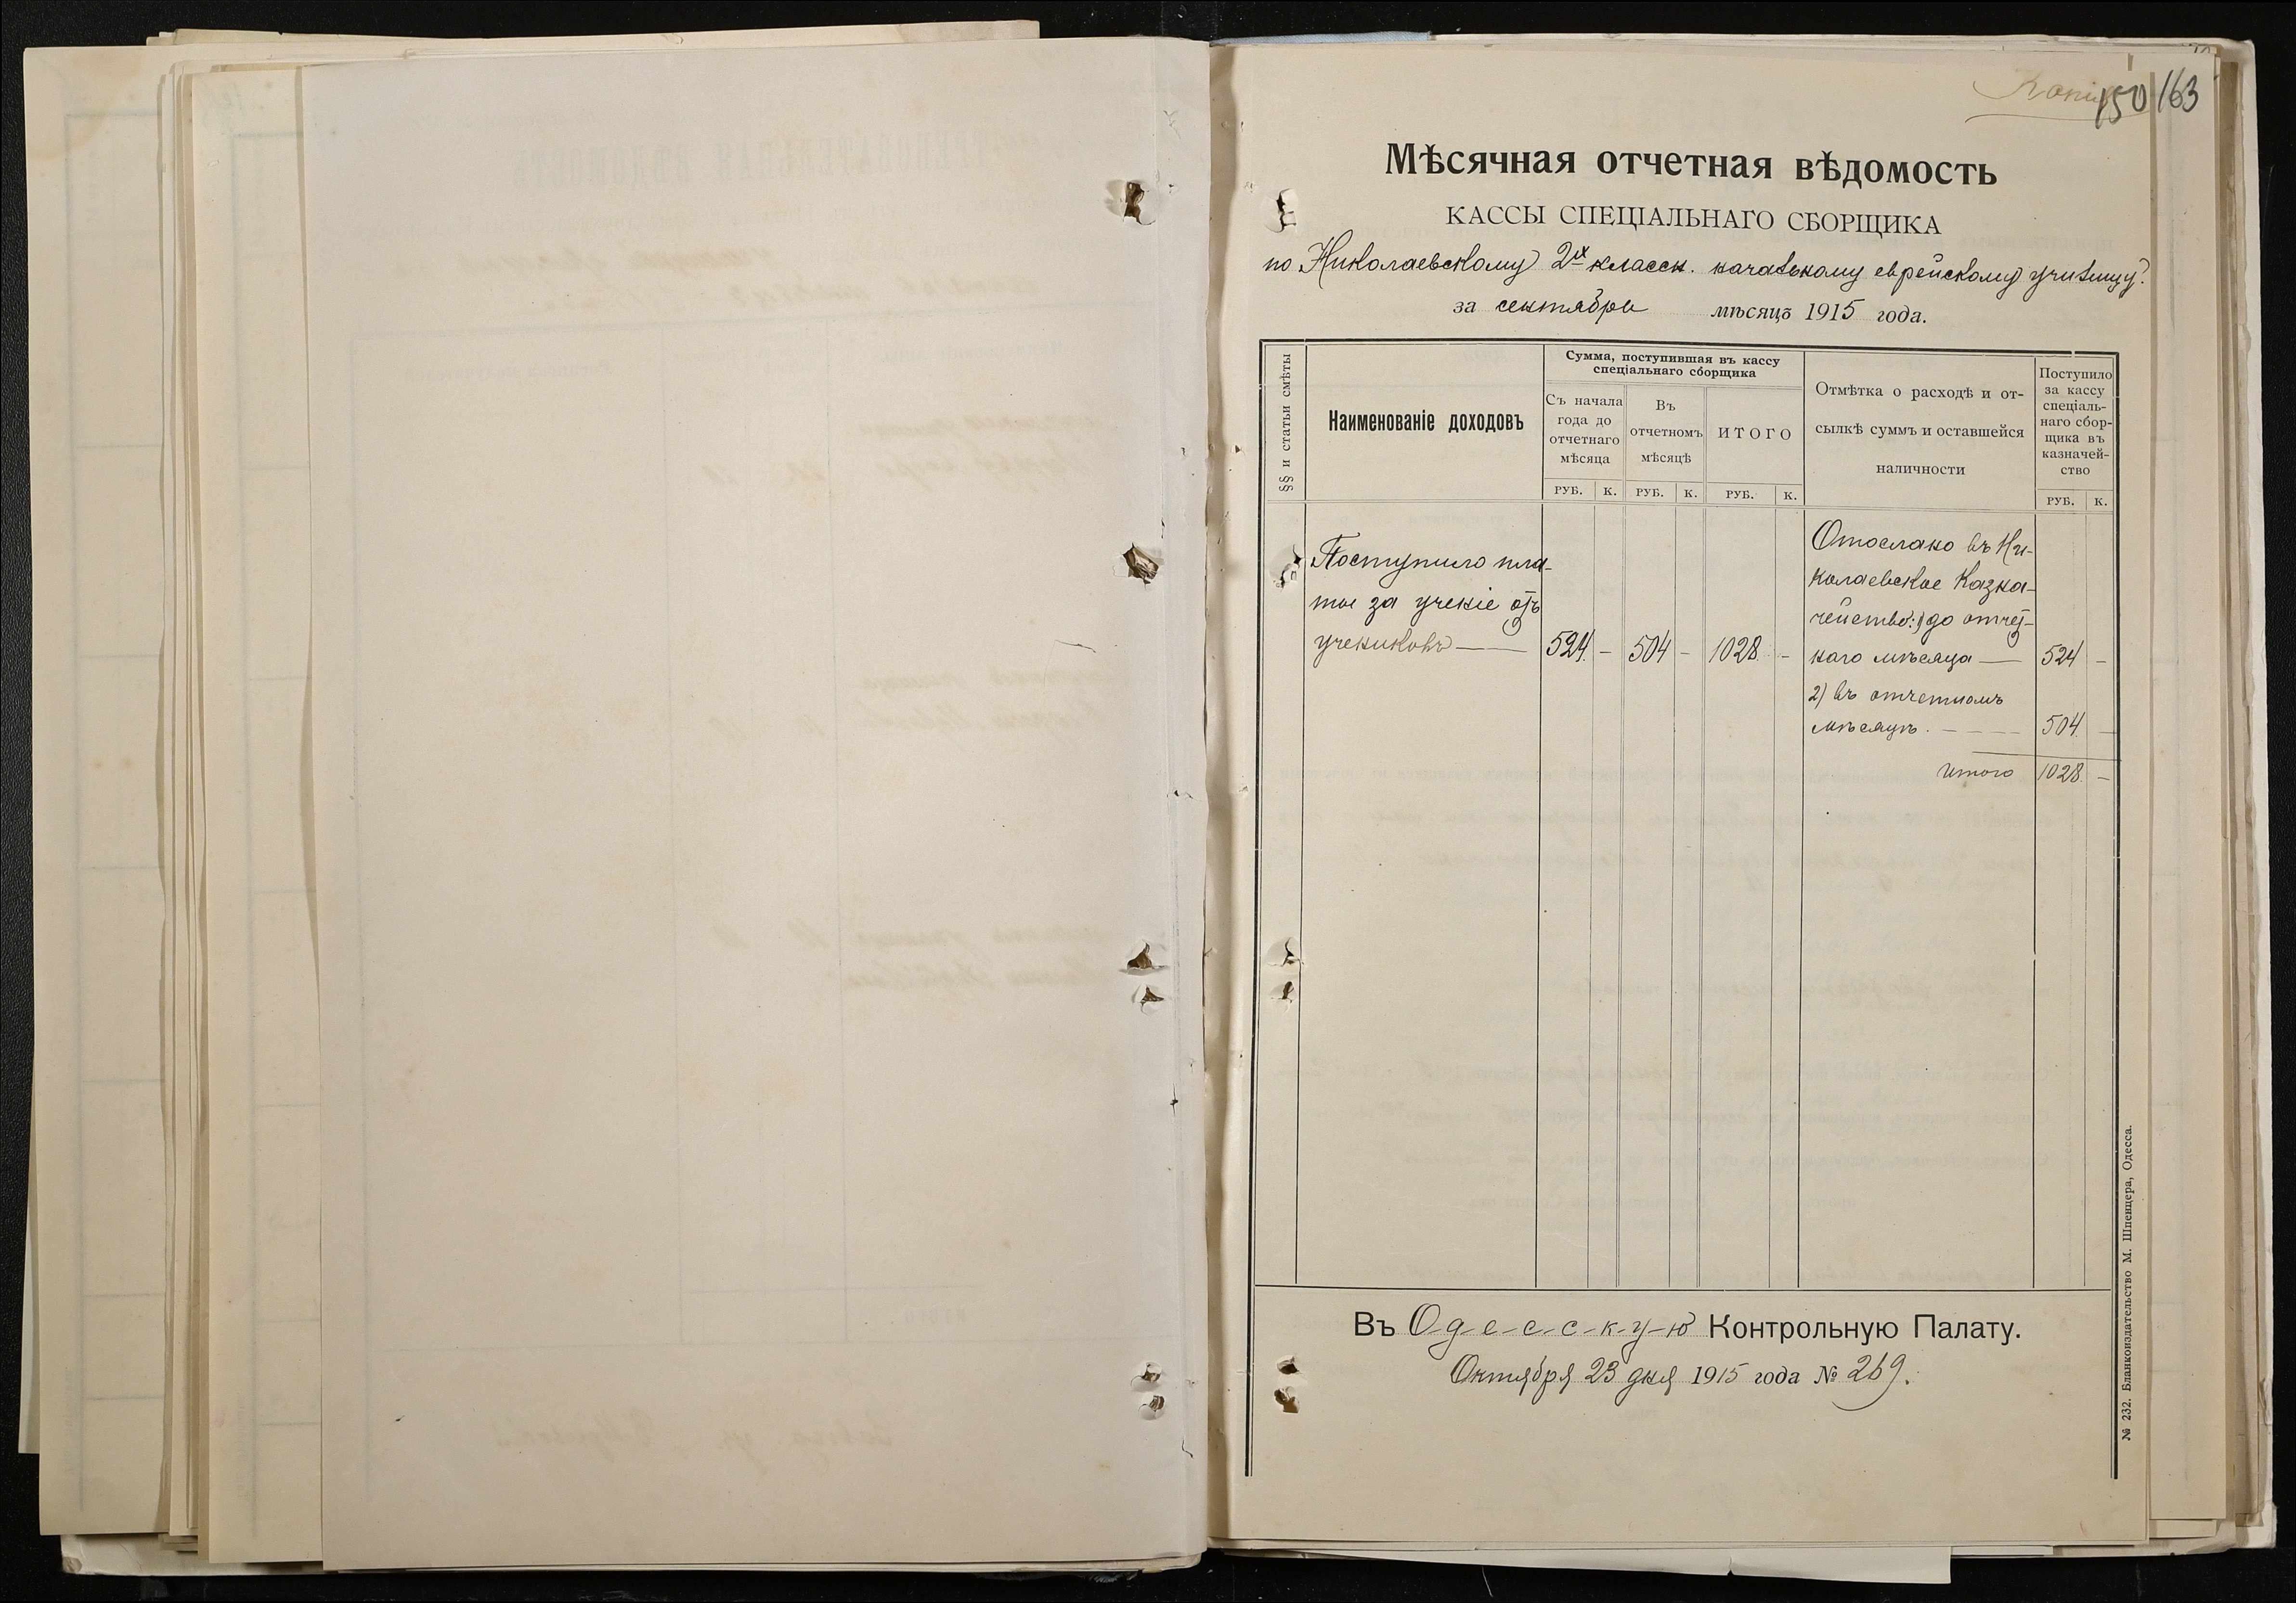 Копія
150 163
Мѣсячная отчетная вѣдомость
КАССЫ СПЕЦІАЛЬНАГО СБОРЩИКА
по Николаевскому 2х класск. начальному еврейскому училищу.
за сентябрь мѣсяцъ 1915 года.
§§ и статьи смѣты
Наименованіе доходовъ
Сумма, поступившая въ кассу
спеціальнаго сборщика
Съ начала
года до
отчетнаго
мѣсяца
Въ
отчетномъ
мѣсяцѣ
ИТОГО
Отмѣтка о расходѣ и от-
сылкѣ суммъ и оставшейся
наличности
Поступило
за кассу
спеціаль-
наго сбор-
щика въ
казначей-
ство
РУБ. К. РУБ. К. РУБ. К. РУБ. К.
Поступило пла-
ты за ученіе отъ
учениковъ — 524 - 504 - 1028 -
Отослано въ Ни-
колаевское Казна-
чейство: 1) до отчет-
наго мѣсяца — 524 -
2) въ отчетномъ
мѣсяцѣ. - - - - 504 -
Итого 1028 -
Въ О-д-е-с-с-к-у-ю Контрольную Палату.
Октября 23 дня 1915 года № 269.
№ 232. Бланкоиздательство М. Шпенцера, Одесса.